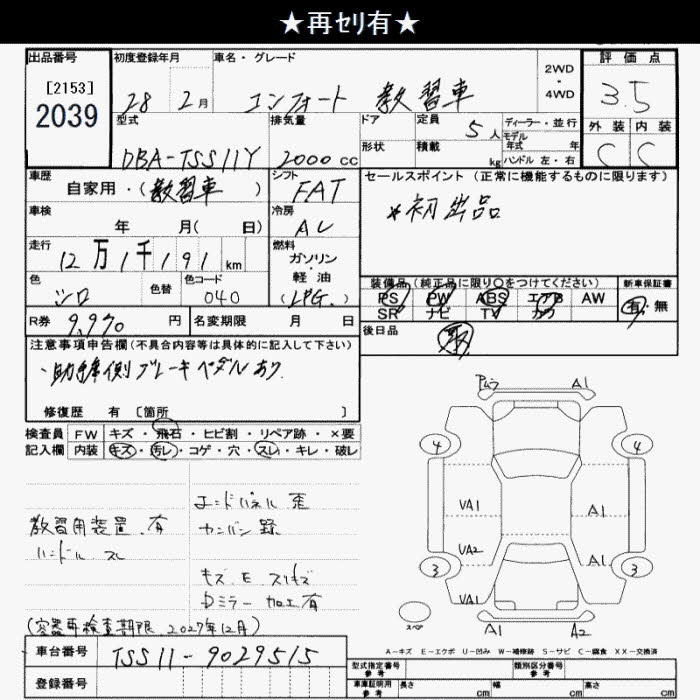 ★再ｾﾘ有★
出品番号
[2153]
2039
初度登録年月
28 2月
車名・グレード
コンフォート 教習車
2WD
・
4WD
評価点
3.5
外装 内装
C C
型式
DBA-TSS11Y
排気量
2000cc
ドア
形状
定員
5人
積載
kg
ディーラー・並行
モデル
年式 年
ハンドル 左・右
車歴
自家用・(教習車)
シフト
FAT
車検
年 月( 日)
冷房
AC
走行
12万1千191km
燃料
ガソリン
・
軽油
(LPG.)
色
シロ
色替
色コード
040
R券
9,970円
名変期限 月 日
セールスポイント (正常に機能するものに限ります)
*初出品
装備品(純正品に限り○をつけてください)
PS PW ABS エアB AW
SR ナビ TV カワ
新車保証書
有・無
後日品
取
注意事項申告欄(不具合内容等は具体的に記入して下さい)
・助手席側ブレーキペダルあり
修復歴 有 [箇所 ]
検査員 FW キズ・飛石・ヒビ割・リペア跡・×要
記入欄 内装 キズ・汚レ・コゲ・穴・スレ・キレ・破レ
教習用装置.有
ハンドル スレ
エンドパネル 歪
カンバン跡
キズ.E.スリキズ
Dミラー 加工有
(容器再検査期限.2027年12月)
ムラ A1
4 4
VA1 A1
VA2 A1
3 3
VA1
スペア
A1 A2
A-キズ E-エクボ U-凹み W-補修跡 S-サビ C-腐食 XX-交換済
車台番号
TSS11-9029515
登録番号
型式指定番号
参考
類別区分番号
参考
車庫証明用
参考
長さ cm 幅 cm 高さ cm